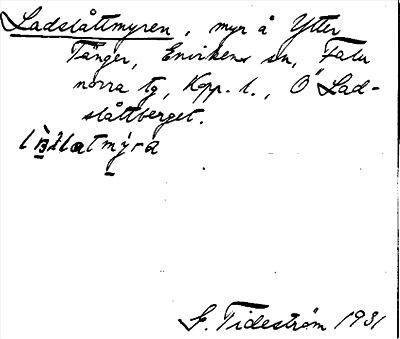 Ladslåttmyren, myr å Ytter
Tänger, Envikens sn, Falu
norra tg, Kopp. l., Ö Lad-
slåttberget.
G. Tideström 1931